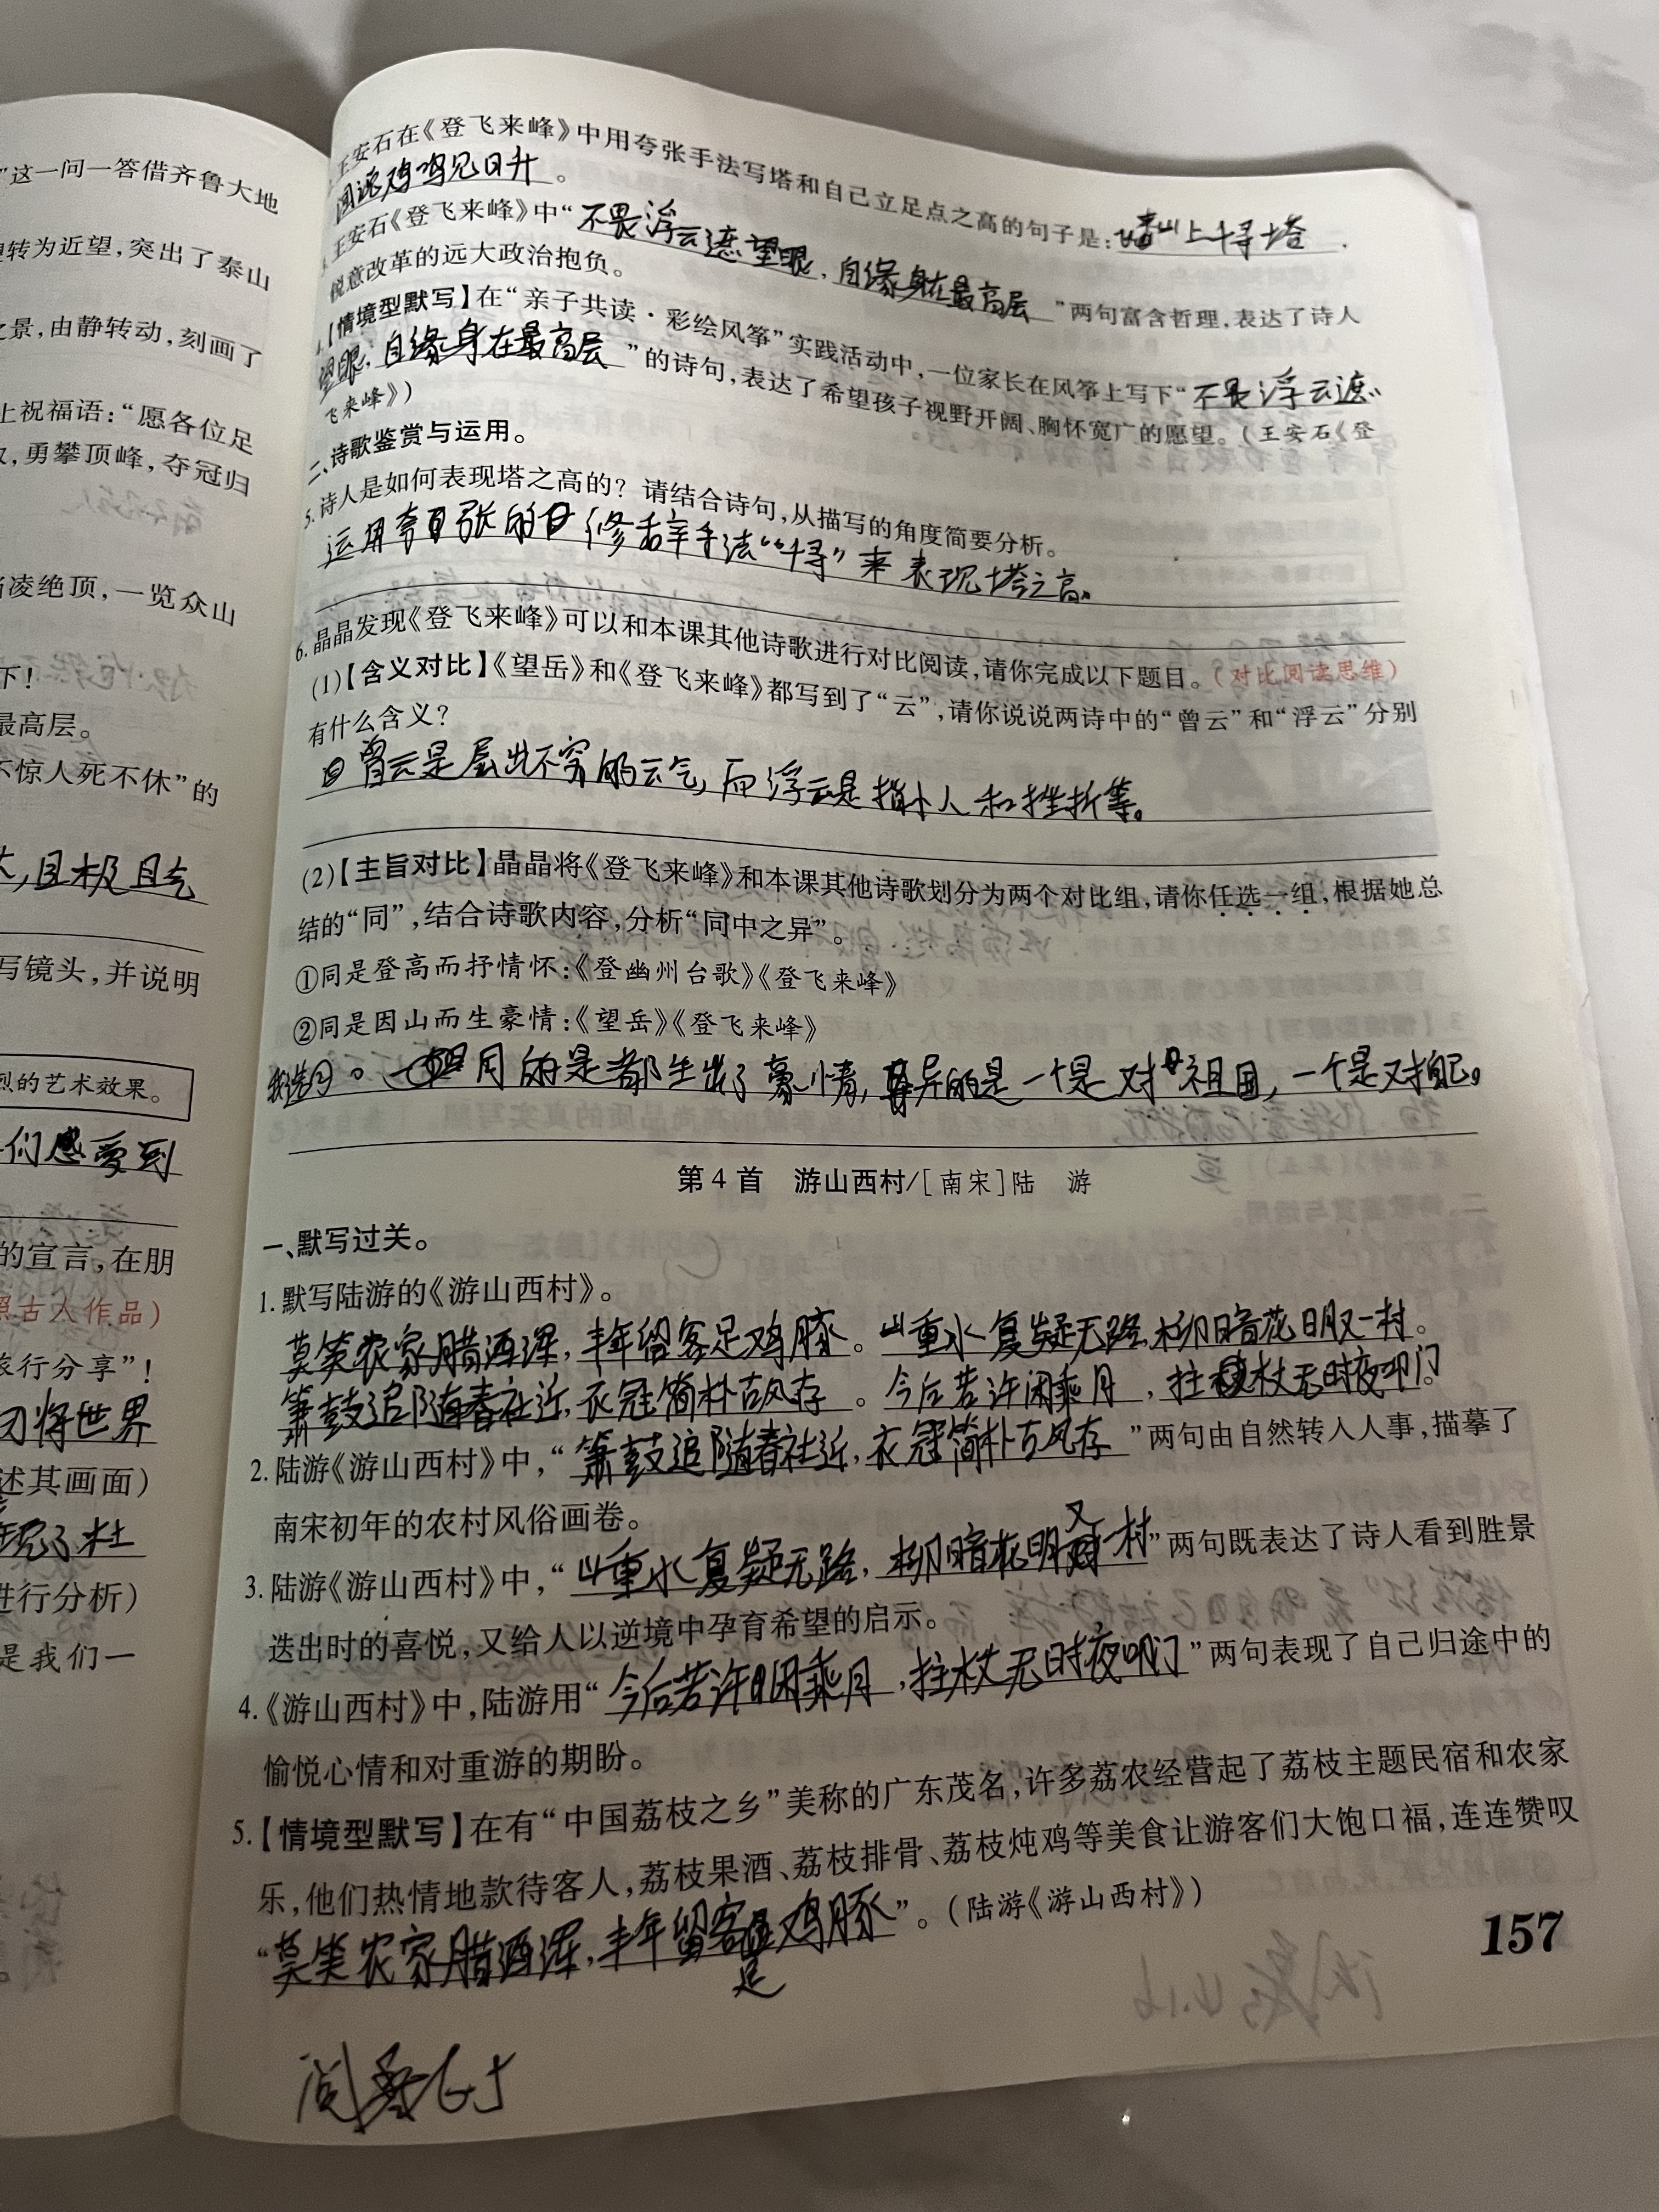 ”这一问一答借齐鲁大地
转为近望,突出了泰山
之景,由静转动,刻画了
上祝福语:“愿各位足
,勇攀顶峰,夺冠归
凌绝顶,一览众山
下!
最高层。
不惊人死不休”的
,且极具气
写镜头,并说明
烈的艺术效果。
们感受到
的宣言,在朋
照古人作品)
旅行分享”!
将世界
述其画面)
现了杜
进行分析)
是我们一
王安石在《登飞来峰》中用夸张手法写塔和自己立足点之高的句子是:山上千寻塔
闻说鸡鸣见日升。
王安石《登飞来峰》中“不畏浮云遮望眼,自缘身在最高层”两句富含哲理,表达了诗人
锐意改革的远大政治抱负。
4.【情境型默写】在“亲子共读·彩绘风筝”实践活动中,一位家长在风筝上写下“不畏浮云遮
望眼,自缘身在最高层”的诗句,表达了希望孩子视野开阔、胸怀宽广的愿望。(王安石《登
飞来峰》)
二、诗歌鉴赏与运用。
5.诗人是如何表现塔之高的?请结合诗句,从描写的角度简要分析。
运用夸张的修辞手法“千寻”来表现塔之高。
6.晶晶发现《登飞来峰》可以和本课其他诗歌进行对比阅读,请你完成以下题目。(对比阅读思维)
(1)【含义对比】《望岳》和《登飞来峰》都写到了“云”,请你说说两诗中的“曾云”和“浮云”分别
有什么含义?
曾云是层出不穷的云气,而浮云是指小人和挫折等。
(2)【主旨对比】晶晶将《登飞来峰》和本课其他诗歌划分为两个对比组,请你任选一组,根据她总
结的“同”,结合诗歌内容,分析“同中之异”。
①同是登高而抒情怀:《登幽州台歌》《登飞来峰》
②同是因山而生豪情:《望岳》《登飞来峰》
我选②。同的是都生出了豪情,异的是一个是对祖国,一个是对自己。
第4首 游山西村/[南宋]陆 游
一、默写过关。
1.默写陆游的《游山西村》。
莫笑农家腊酒浑,丰年留客足鸡豚。山重水复疑无路,柳暗花明又一村。
箫鼓追随春社近,衣冠简朴古风存。今后若许闲乘月,拄杖无时夜叩门。
2.陆游《游山西村》中,“箫鼓追随春社近,衣冠简朴古风存”两句由自然转入人事,描摹了
南宋初年的农村风俗画卷。
3.陆游《游山西村》中,“山重水复疑无路,柳暗花明又一村”两句既表达了诗人看到胜景
迭出时的喜悦,又给人以逆境中孕育希望的启示。
4.《游山西村》中,陆游用“今后若许闲乘月,拄杖无时夜叩门”两句表现了自己归途中的
愉悦心情和对重游的期盼。
5.【情境型默写】在有“中国荔枝之乡”美称的广东茂名,许多荔农经营起了荔枝主题民宿和农家
乐,他们热情地款待客人,荔枝果酒、荔枝排骨、荔枝炖鸡等美食让游客们大饱口福,连连赞叹
“莫笑农家腊酒浑,丰年留客足鸡豚”。(陆游《游山西村》)
157